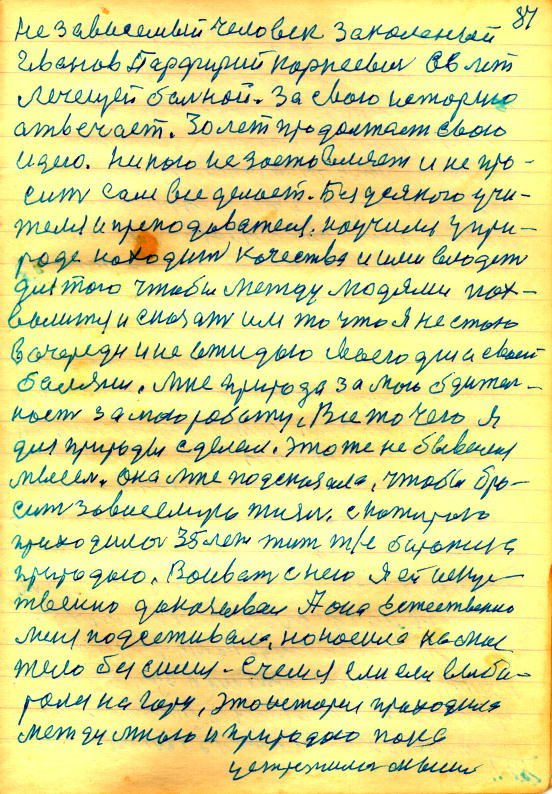 87
Не зависемый человек заколеный
Иванов Парфирий Корнеевич 68 лет
лечещей балной. За свою историю
атвечает. 30 лет продолжает свою
идею. Никого не заставляет и не про-
сить сам все делает. Без всякого учи-
теля и преподователя. научился у при-
роде находить качества и ими владеть
для того чтобы между людями пох-
валитця и сказать им то что я не стою
в очереди и не ожидаю своего дня и своей
балячки. Мне природа за мою бдител-
ность за мою работу. Все то чего я
для природы сделал. это же не бывалый
мысел. она мне подсказала, чтобы бро-
сить зависемую жизн. с которого
приходилос 35 лет жить т/е боротися
природою. Воивать с нею я ей искус-
твенно доказывал А она Естественно
меня подсеживала, наносила на мое
тело бессилия. С чем я еле еле выби-
рался на гору, эта история приходила
между мною и природою пока